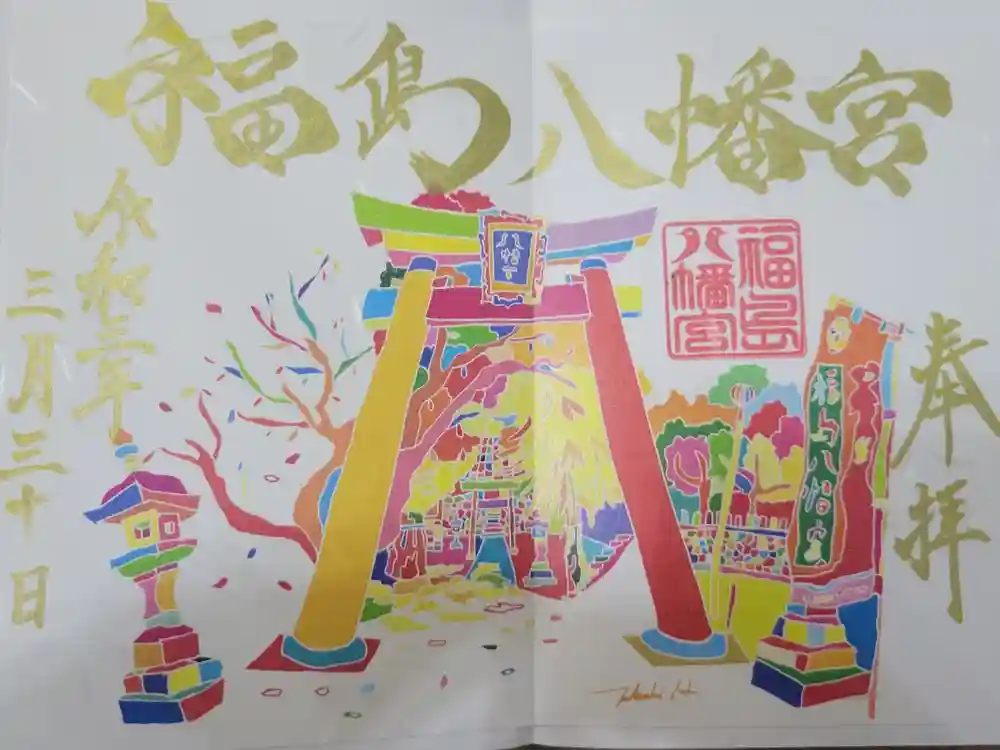 福島八幡宮
奉拝
福島
八幡宮
八幡宮
福島八幡宮
令和三年
三月三十日